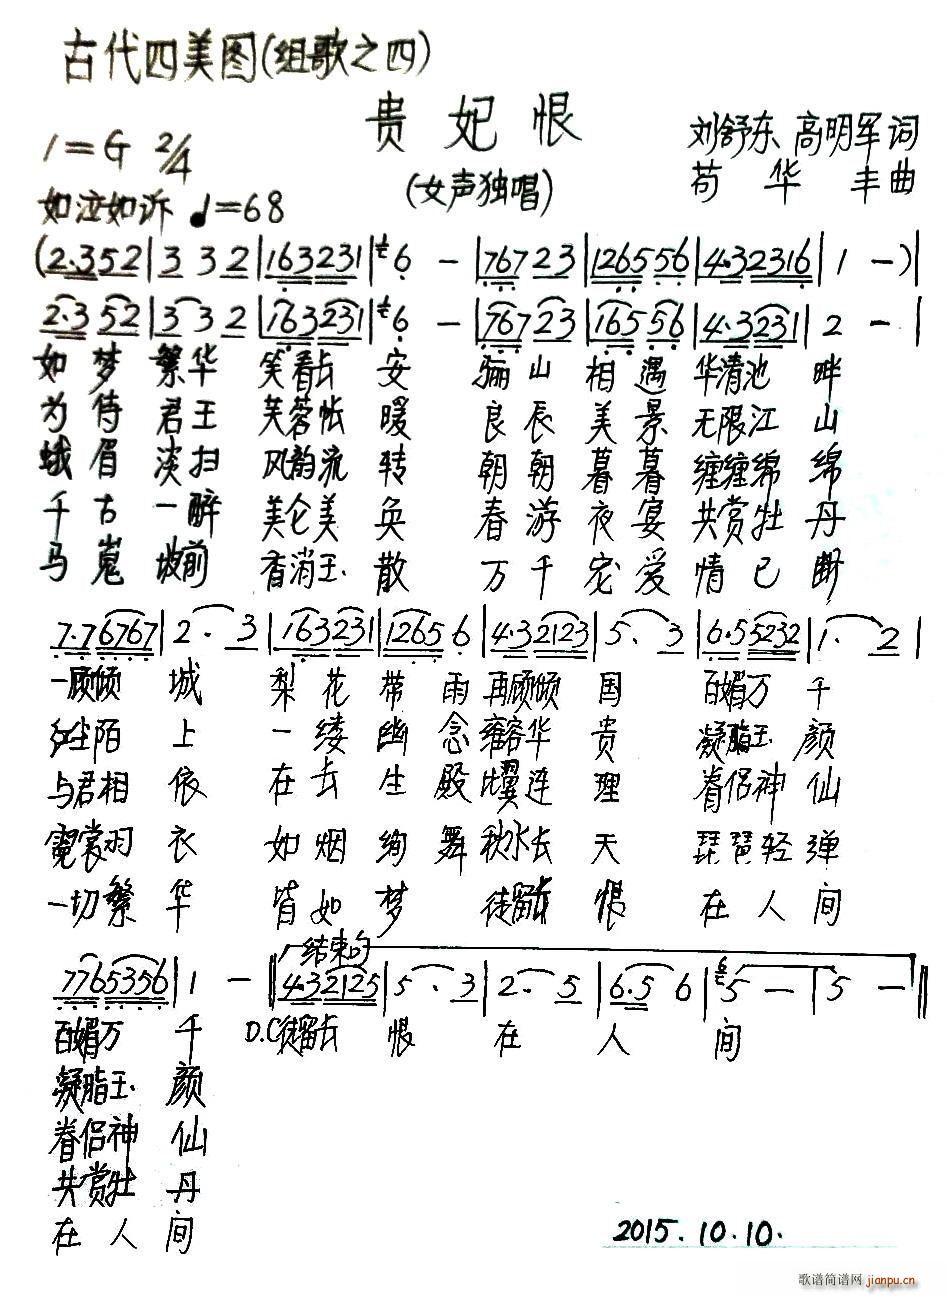 古代四美图(组歌之四)
贵妃恨
1=G 2/4
刘舒东、高明军词
(女声独唱)
苟华丰曲
如泣如诉 ♩=68
(2·352|332|163231|6 -|76723|126556|4·32316|1 -)|
2·352|332|163231|6 -|76723|165556|4·3231|2 -|
如梦繁华 笑看长安 骊山相遇 华清池畔
为侍君王 芙蓉帐暖 良辰美景 无限江山
蛾眉淡扫 风韵流转 朝朝暮暮 缠缠绵绵
千古一醉 美仑美奂 春游夜宴 共赏牡丹
马嵬坡前 香消玉散 万千宠爱 情已断
7·76767|2· 3|163231|12656|4·32123|5· 3|6·55232|1· 2|
一顾倾城 梨花带雨 再顾倾国 百媚万千
红尘陌上 一缕幽念 雍容华贵 凝脂玉颜
与君相依 在长生殿 比翼连理 眷侣神仙
霓裳羽衣 如烟绚舞 秋水长天 琵琶轻弹
一切繁华 皆如梦 徒留长恨 在人间
结束句
7765356|1 -‖4·32125|5· 3|2· 5|6·5 6|5 -|5 -‖
百媚万千 D.C徒留长恨在人间
凝脂玉颜
眷侣神仙
共赏牡丹
在人间
2015.10.10.
歌谱简谱网 jianpu.cn